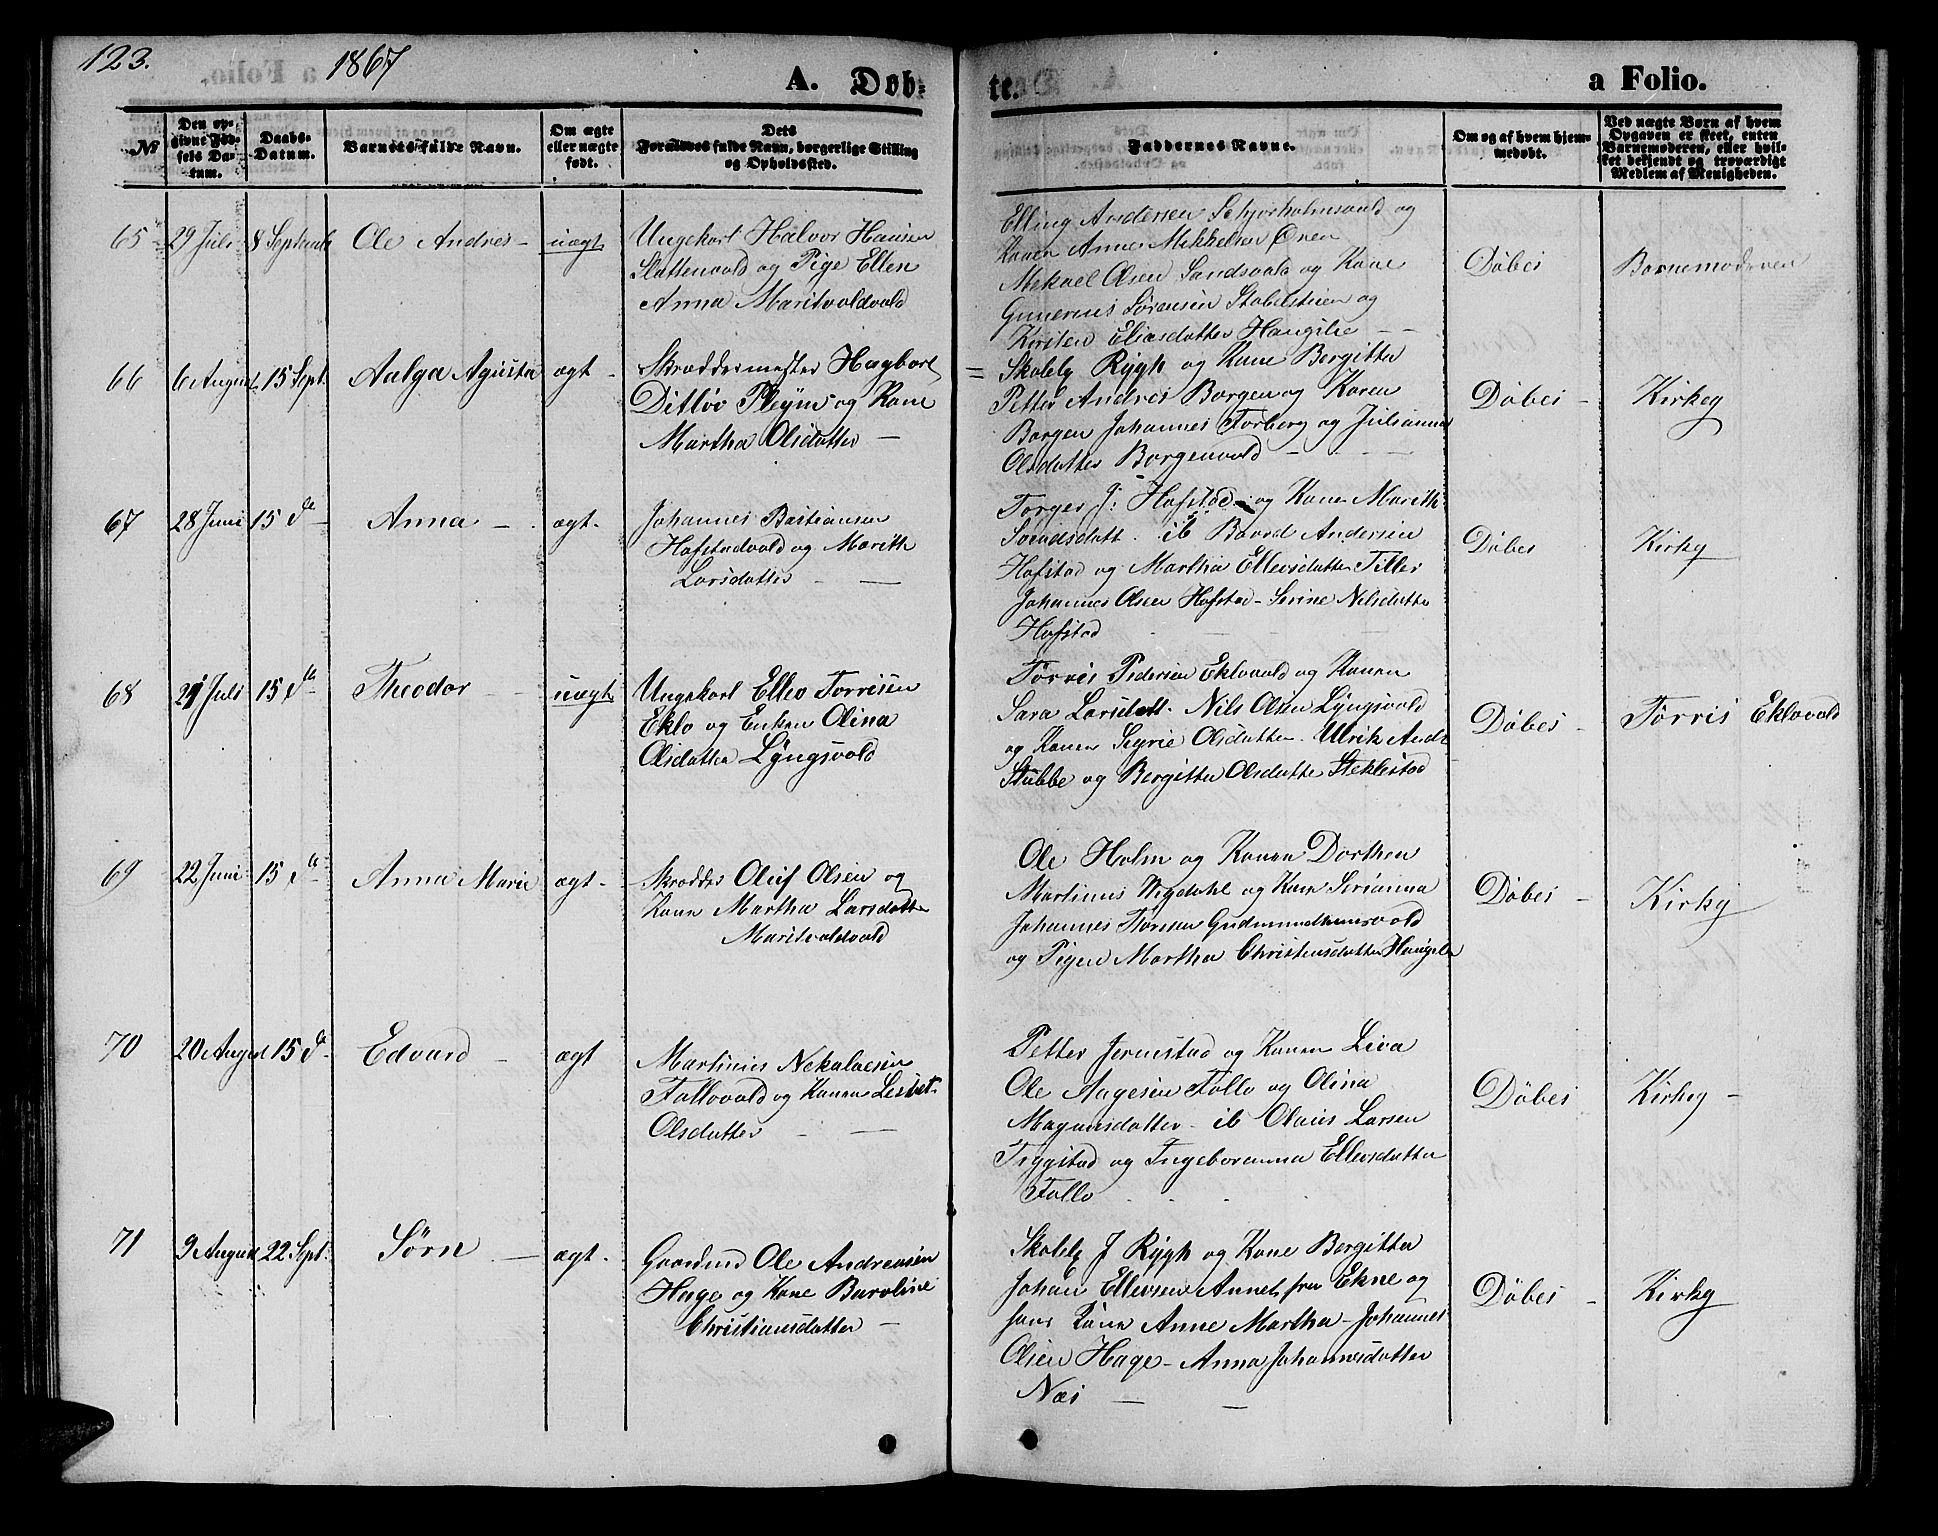 123.
1867
A. Døb-
te.
a Folio.
№
Den op-
givne Fød-
sels Da-
tum.
Daabs-
Datum.
Barnets fulde Navn.
Om ægte
eller uægte
født.
Dets
Forældres fulde Navn, borgerlige Stilling
og Opholdssted.
Faddernes Navne.
Om og af hvem hjem-
medøbt.
Ved uægte Børn af hvem
Opgaven er skeet, enten
Barnemoderen, eller hvil-
ket bekjendt og troværdigt
Medlem af Menigheden.
65 29 Juli 8 Septemb Ole Andres - uægt
Ungekarl Halvor Hansen
Slottenvald og Pige Ellen
Anna Maritvoldvald
Elling Andersen Schjørholmsvald og
Konen Anne Mikkelsen Øren
Mikael Olsen Sandsvald og Kone
Gunerius Sørensen Stabelstuen og
Kirsten Eliasdatter Haugslie - -
Døbes
Barnemoderen
66 6 August 15 Sept. Aalga Agusta ægt -
Skræddermester Hagbart
Ditløv Pleym og Kone
Martha Olsdatter -
= Skolelg Rygh og Kone Bergitta
Petter Andres Borgen og Karen
Borgen Johannes Forberg og Julianna
Olsdatter Borgenvald - - - -
Døbes -
Kirkeg
67 28 Juni 15 de - Anna - ægt -
Johannes Bastiansen
Hofstadvald og Marith
Larsdatter - -
Torger J: Hofstad og Kone Marith
Sivedsdatt. ib Baard Andersen
Hofstad og Martha Ellevsdatter Tiller
Johannes Olsen Hofstad - Serine Nilsdatter
Hofstad - -
Døbes
Kirkg
68 21 Juli 15 de - Theodor - uægt
Ungekarl Ellev Torrisen
Eklo og Enken Olina
Olsdatter Lÿngsvald
Torris Pedersen Eklovald og Konen
Sara Larsdatt. Nils Olsen Lÿngsvald
og Konen Seyrie Olsdatter. Ulrik Andr
Stubbe og Bergitta Olsdatter Steklestad
Døbes -
Torris Eklovald
69 22 Juni 15 de - Anna Marie ægt -
Skrædder Oluf Olsen og
Konen Martha Larsdatter
Maritvoldvald
Ole Holm og Konen Dorthea
Martinus Wegdahl og Kone Serianna
Johannes Toresen Gudmundhusvald
og Pigen Martha Christensdatter Haugsl
Døbes -
Kirkg
70 20 August 15 de - Edvard - ægt
Martinus Nekolaesen
Follovald og Konen Lesbet
Olsdatter - -
Petter Jermstad og Konen Liva
Ole Aagesen Follo og Olina
Magnusdatter - ib Olaus Larsen
Tiggstad og Ingeboranna Ellevsdatter
Follo
Døbes
Kirkeg -
71 9 August 22 Sept. Sørn - ægt -
Gaardmd Ole Andreasen
Hage og Kone Baroline
Christiansdatter -
Skolelg J Rÿgh og Kone Bergitta
Johan Ellevsen Annet fra Ekne og
hans Kone Anne Martha - Johannes
Olsen Hage - Anna Johannesdatter
Næs - -
Døbes -
Kirkg